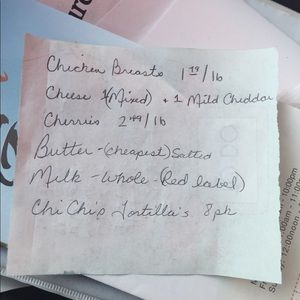 Chicken Breasts 1 79/lb
Cheese 1(Mixed) + 1 Mild Cheddar
Cherries 2.49/lb
Butter - (cheapest) Salted
Milk - whole - (Red label)
Chi Chi's Tortilla's 8pk
10:00pm